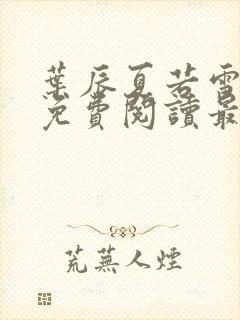 葉辰夏若雪
免費閱讀最
荒蕪人煙